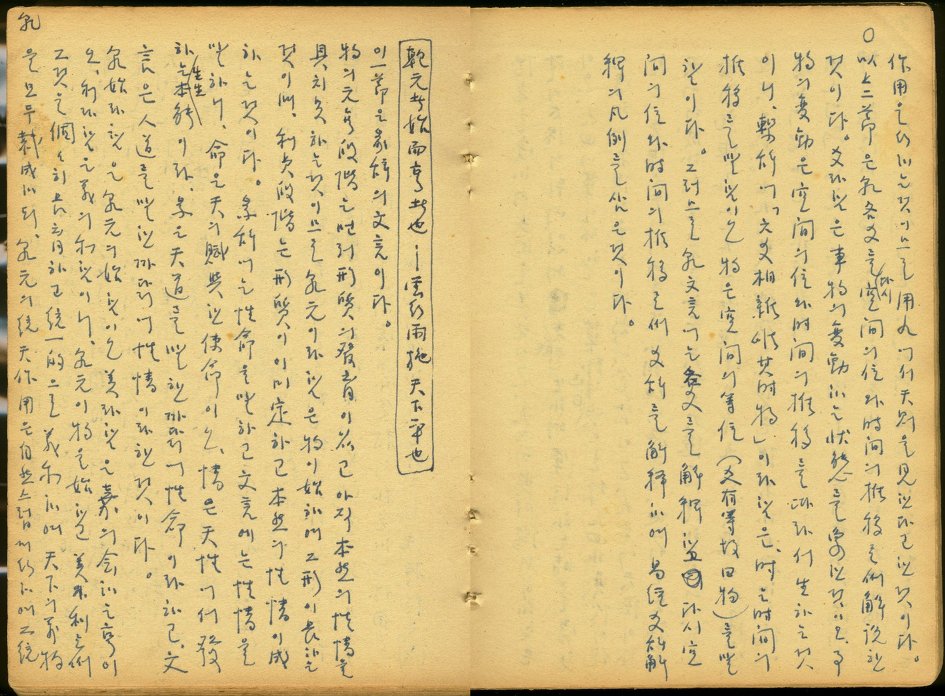 作用을 하는것이므로 用九에서 天則을 見한다고 한것이다。
以上二節은 乾各爻를 다시 空間의 位와 時間의 推移로써 解說한
것이다。爻라한것은 事物의 變動하는 狀態를 象한것으로, 事
物의 變動은 空間의 位와 時間의 推移를 따라서 生하는것
이니, 繫辭에「六爻相雜唯其時物」이라한것은, 時는 時間의
推移를 말한것이오 物은 空間의 等位(爻有等故曰物)를 말
한것이다。그러므로 乾文言에는 各爻를 解釋하고 다시 空
間의 位와 時間의 推移로써 爻辭를 解釋하여 易經爻辭解
釋의 凡例를 삼은것이다。
乾元者始而亨者也—雲行雨施天下平也
이一節은 彖辭의 文言이다。
物의 元亨段階는 먼저 形質의 發育이 있고 아직 本然의 性情을
具치못하는것이므로 乾元이라한것은 物이 始하여 그形이 長하는
것이며, 利貞段階는 形質이 이미 定하고 本然의 性情이 成
하는것이다。彖辭에는 性命을 말하고 文言에는 性情을
말하니, 命은 天의 賦與한 使命이오, 情은 天性에서 發
하는 生生本能이라, 彖은 天道를 말한 까닭에 性命이라하고, 文
言은 人道를 말한 까닭에 性情이라한것이다。
乾始라한것은 乾元의 始한것이오 美라한것은 嘉의 会하는 亨이
오, 利라한것은 義의 和한것이니, 乾元이 物을 始하고 美利로써
그것을 個個히 長育하고 統一的으로 義和하여 天下의 萬物
을 모두 裁成하되, 乾元의 統天作用은 自然스럽게 行하여 그統
乾